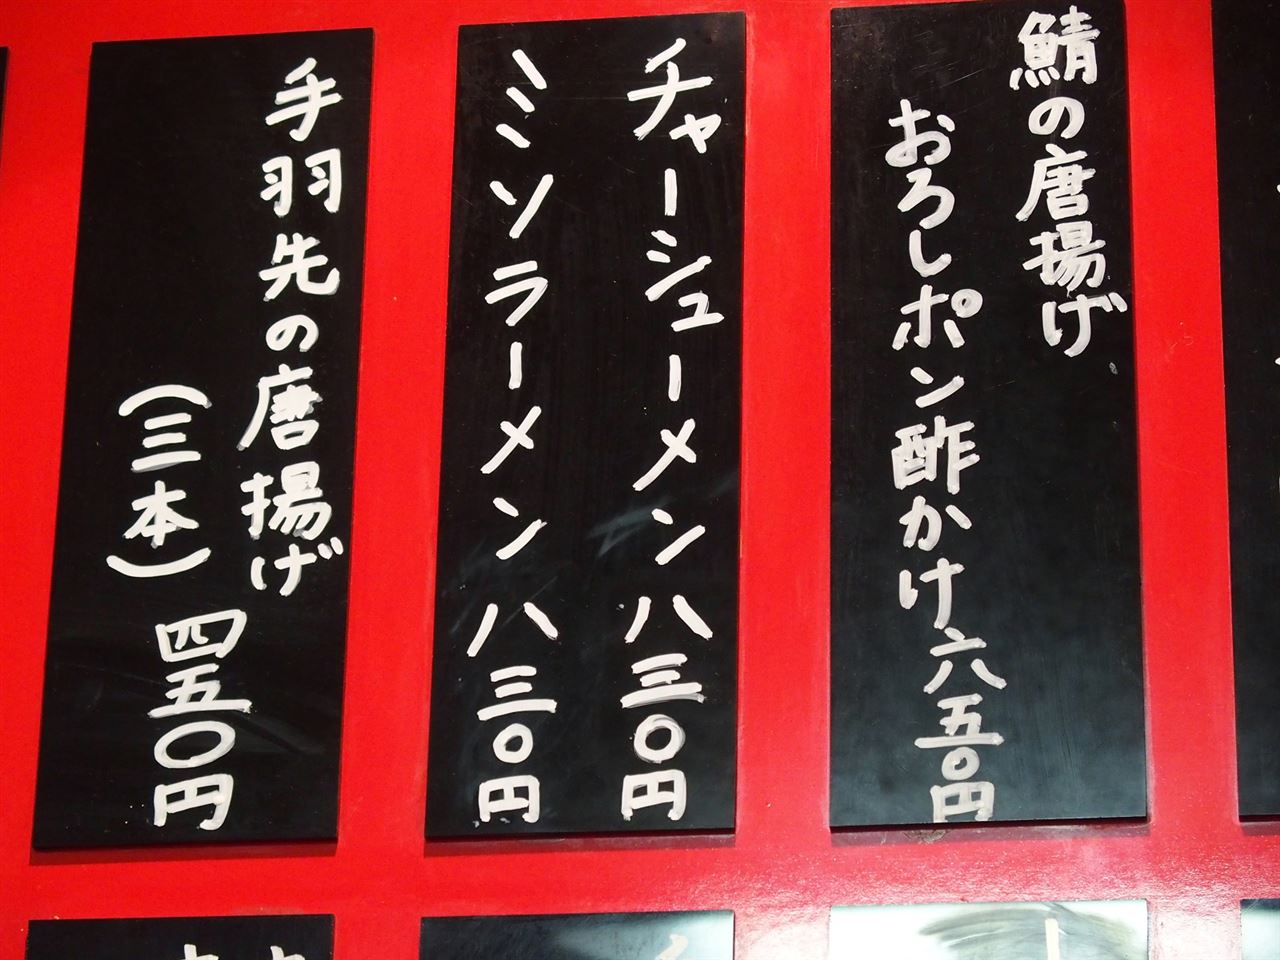 鯖の唐揚げ
おろしポン酢かけ六五〇円
チャーシューメン八三〇円
ミソラーメン八三〇円
手羽先の唐揚げ
（三本）四五〇円